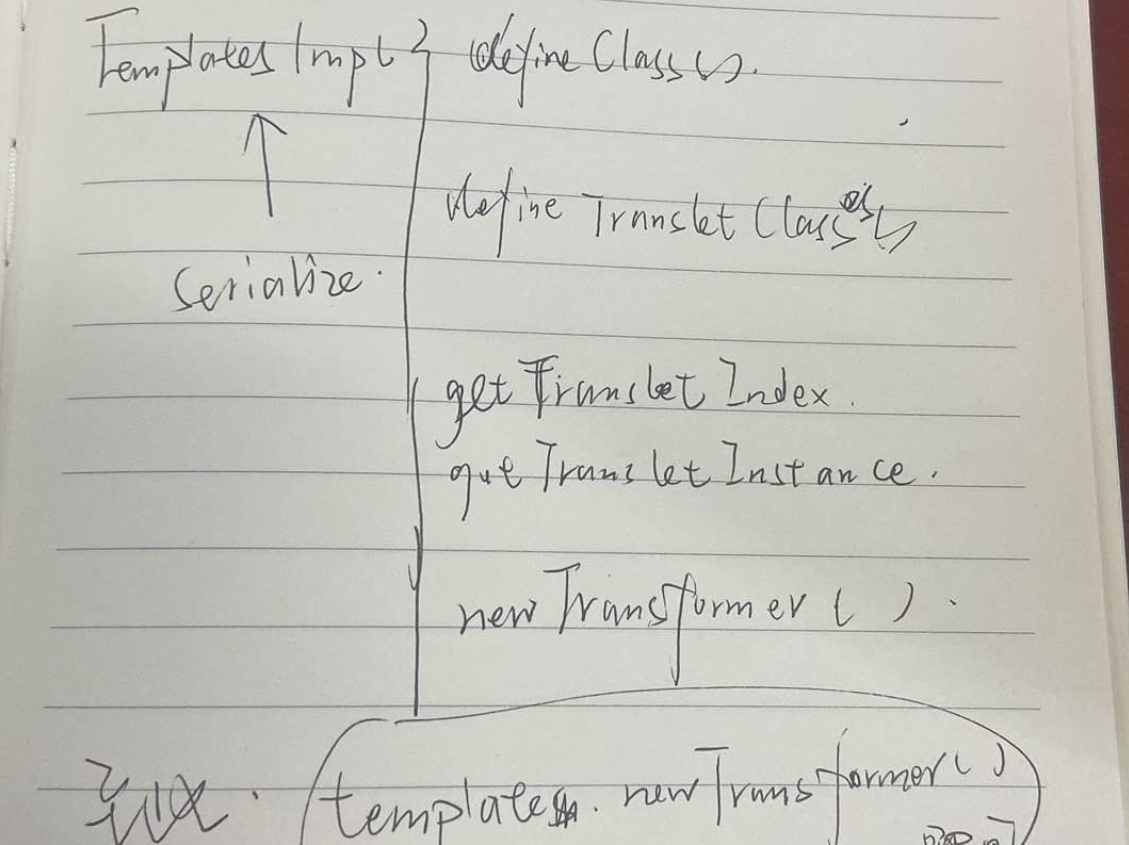 TemplatesImpl } defineClass().
defineTransletClasses()
serialize.
getTransletIndex.
getTransletInstance.
newTransformer ( ).
templates. newTransformer ( )